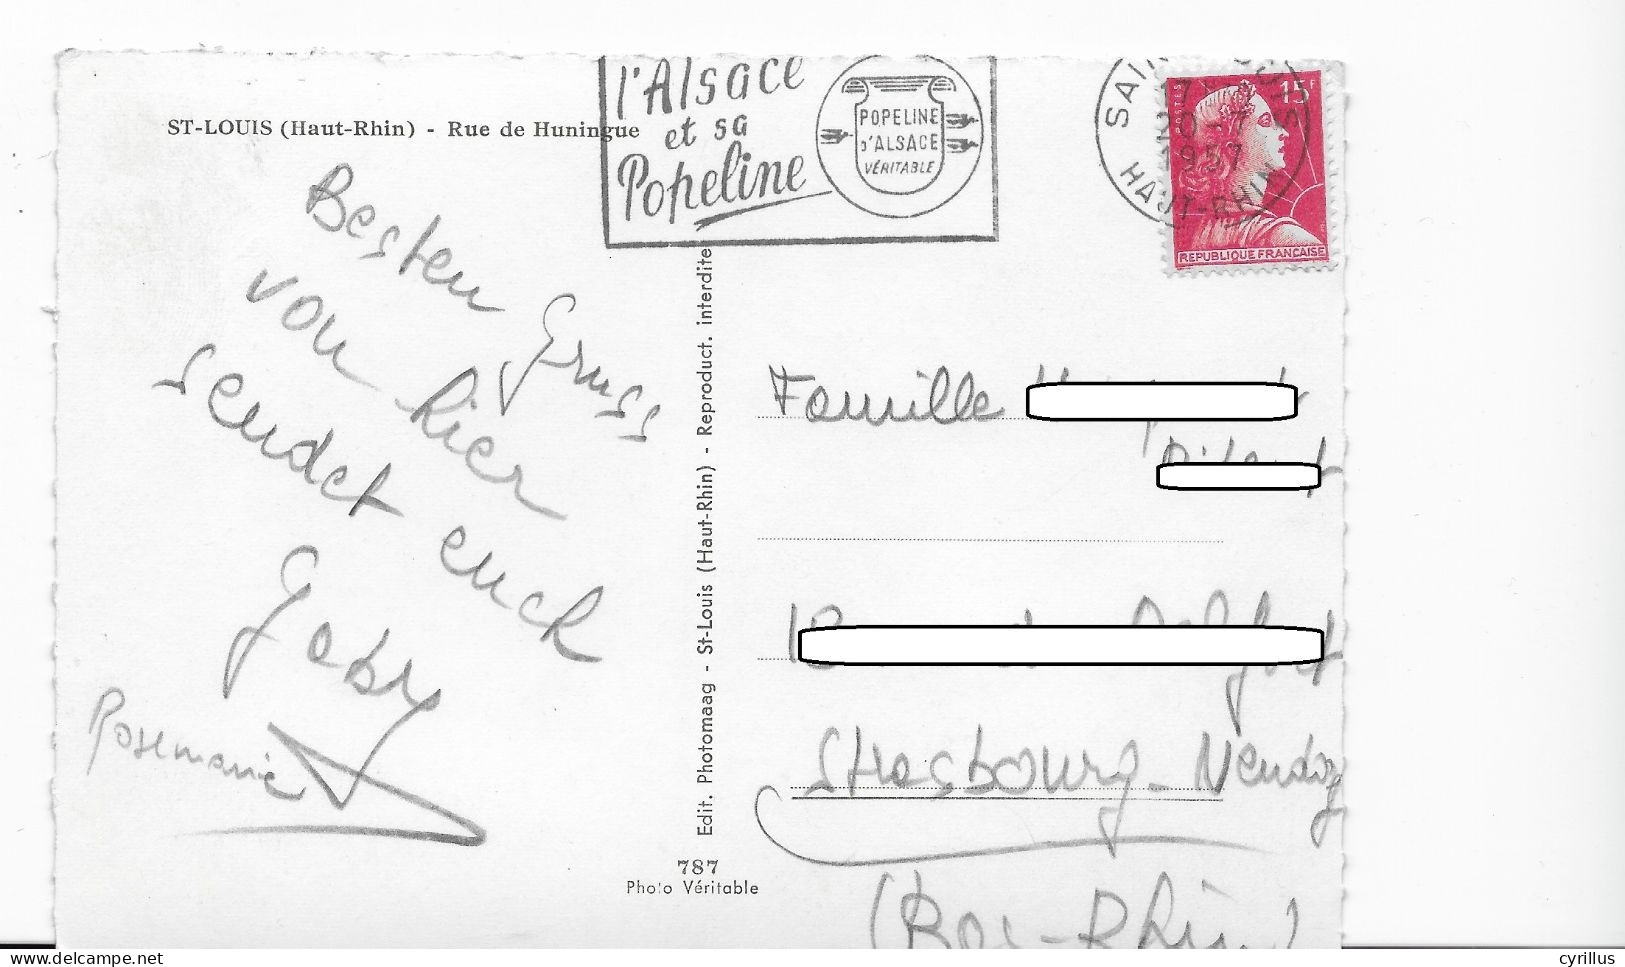 ST-LOUIS (Haut-Rhin) - Rue de Huningue
l'Alsace
et sa
Popeline
POPELINE
D'ALSACE
VÉRITABLE
HAUT-RHIN
1957
POSTES
15F
REPUBLIQUE FRANCAISE
Besten Gruss
von hier
sendet euch
Gaby
Rosemarie
Edit. Photomaag - St-Louis (Haut-Rhin) - Reproduct. interdite
787
Photo Véritable
Famille
Strasbourg-
(Bas-Rhin)
delcampe.net
cyrillus